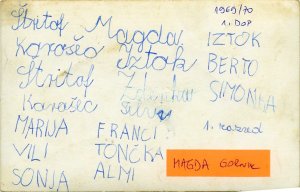 1969/70
1. DOP
Štritof Magda IZTOK
Korošec Iztok BERTO
Štritof Zdenka SIMONKA
Korošec Silvij
MARIJA FRANCI 1. razred
VILI TONČKA MAGDA GORNIK
SONJA ALMI